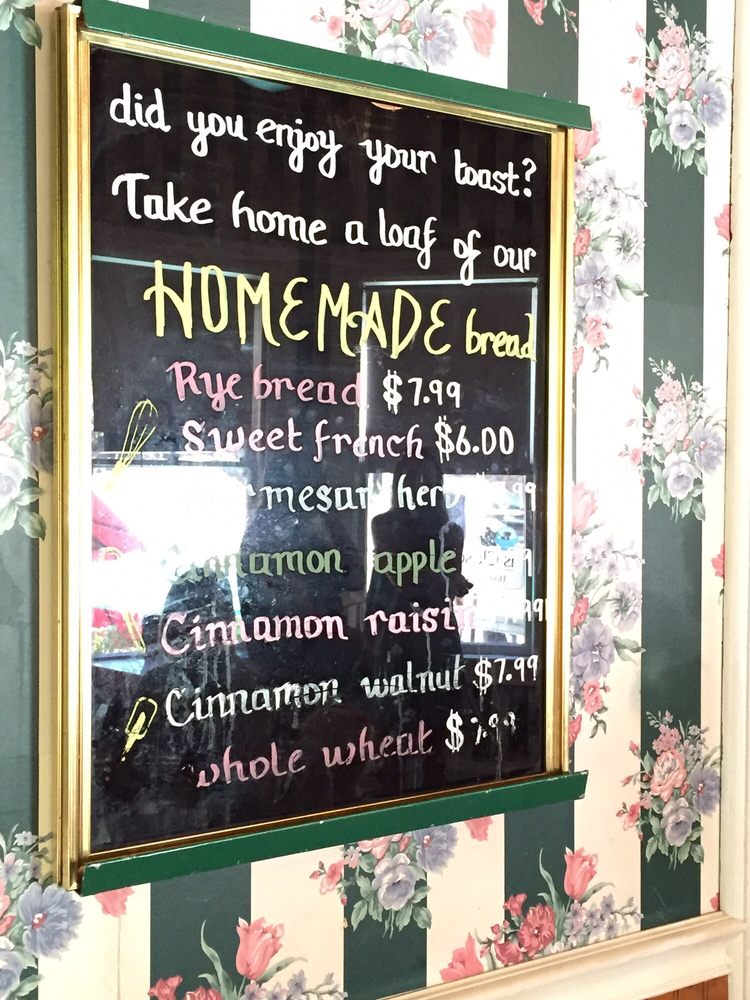 did you enjoy your toast?
Take home a loaf of our
HOMEMADE bread
Rye bread $7.99
Sweet french $6.00
Parmesan herb
Cinnamon apple
Cinnamon raisin
Cinnamon walnut $7.99
whole wheat $7.99